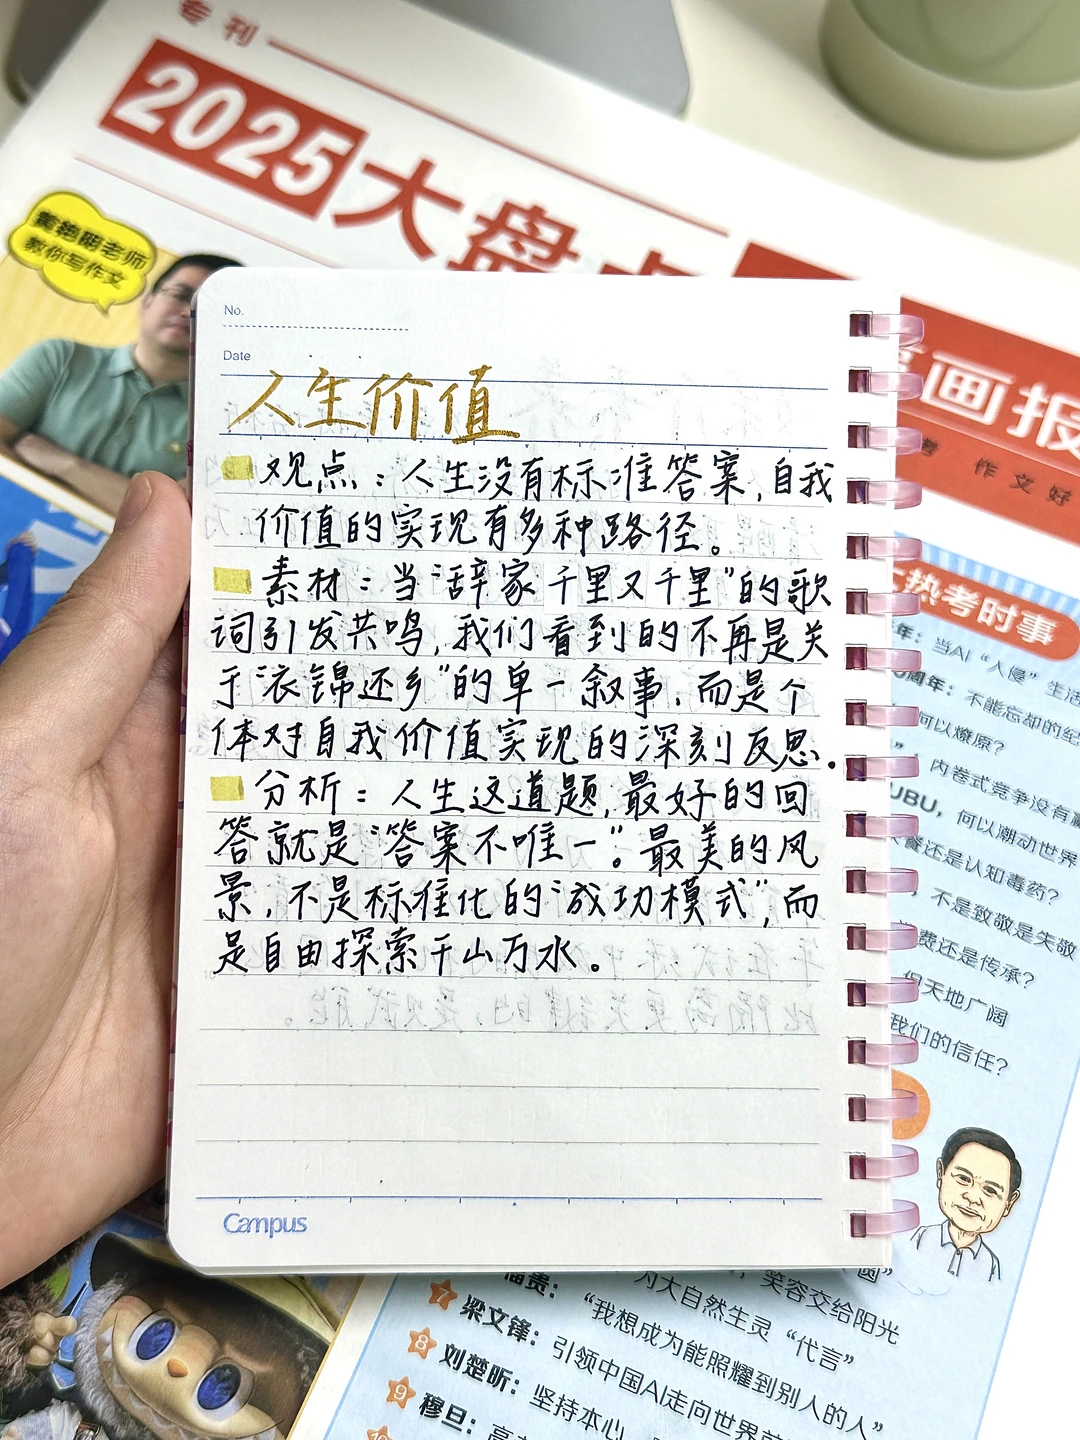 专刊
2025大盘点
黄艳明老师
教你写作文
画报
作文好
热考时事
No.
Date
人生价值
观点：人生没有标准答案，自我
价值的实现有多种路径。
素材：当“辞家千里又千里”的歌
词引发共鸣，我们看到的不再是关
于“衣锦还乡”的单一叙事，而是个
体对自我价值实现的深刻反思。
分析：人生这道题，最好的回
答就是“答案不唯一”。最美的风
景，不是标准化的“成功模式”，而
是自由探索千山万水。
Campus
年：当AI“入侵”生活
周年：不能忘却的纪
何以燎原？
”，内卷式竞争没有赢
UBU，何以潮动世界
餐还是认知毒药？
，不是致敬是失敬
费还是传承？
但天地广阔
我们的信任？
圆”
，笑容交给阳光
为大自然生灵“代言”
7
“我想成为能照耀到别人的人”
8 梁文锋：引领中国AI走向世界前
9 刘楚昕：坚持本心
穆旦：